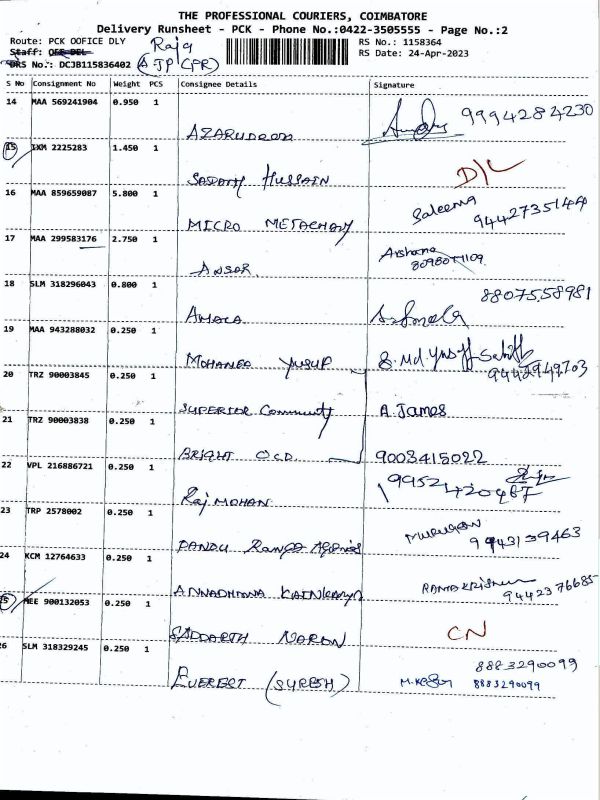 THE PROFESSIONAL COURIERS, COIMBATORE
Delivery Runsheet - PCK - Phone No.:0422-3505555 - Page No.:2
Route: PCK OOFICE DLY Raja RS No.: 1158364
Staff: RS Date: 24-Apr-2023
DRS No.: DCJB115836402 (AJP (PR)
S No Consignment No Weight PCS Consignee Details Signature
14 MAA 569241904 0.950 1 9994284230
AZARUDEEN
15 IXM 2225283 1.450 1 D/L
SADATH HUSSAIN
16 MAA 859659087 5.800 1 Saleema
9442735144
MICRO METACHAM
17 MAA 299583176 2.750 1 Arshana
ANSAR
18 SLM 318296043 0.800 1 8807558981
AMALA
19 MAA 943288032 0.250 1
MOHAMED YUSUF S.Md.Yusuff Sahib
20 TRZ 90003845 0.250 1 9442949703
SUPERIOR Community A. James
21 TRZ 90003838 0.250 1
BRIGHT O.C.D. 9003415022
22 VPL 216886721 0.250 1 9952420487
Raj MOHAN
23 TRP 2578002 0.250 1 Murugan
9943139463
PANDU Range Agencies
24 KCM 12764633 0.250 1 RAMAKRISHNAN
9442376685
ANNADHANA KAINKARYA
25 MEE 900132053 0.250 1
SIDDARTH NARAN CN
26 SLM 318329245 0.250 1 8883290099
EVEREST (SURESH) 8883290099